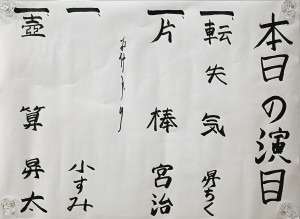 本日の演目
一 転失気 昇ちく
一 片棒 宮治
お仲入り
一 小すみ
一 壺算 昇太